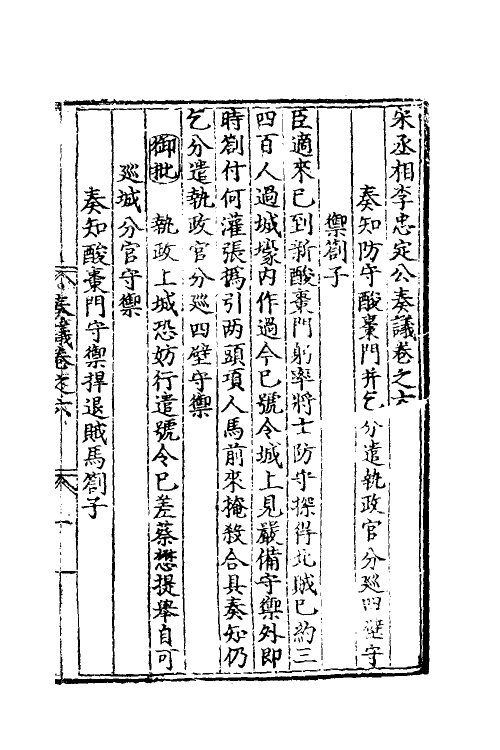 宋丞相李忠定公奏議卷之六
奏知防守酸棗門并乞分遣執政官分廵四壁守
禦劄子
臣適來已到新酸棗門躬率將士防守探得北賊已約三
四百人過城壕內作過今已號令城上見嚴備守禦外即
時劄付何灌張撝引两頭項人馬前來掩殺合具奏知仍
乞分遣執政官分廵四壁守禦
御批 執政上城恐妨行遣號令已差蔡懋提舉自可
廵城分官守禦
奏知酸棗門守禦捍退賊馬劄子
奏議卷之六 一